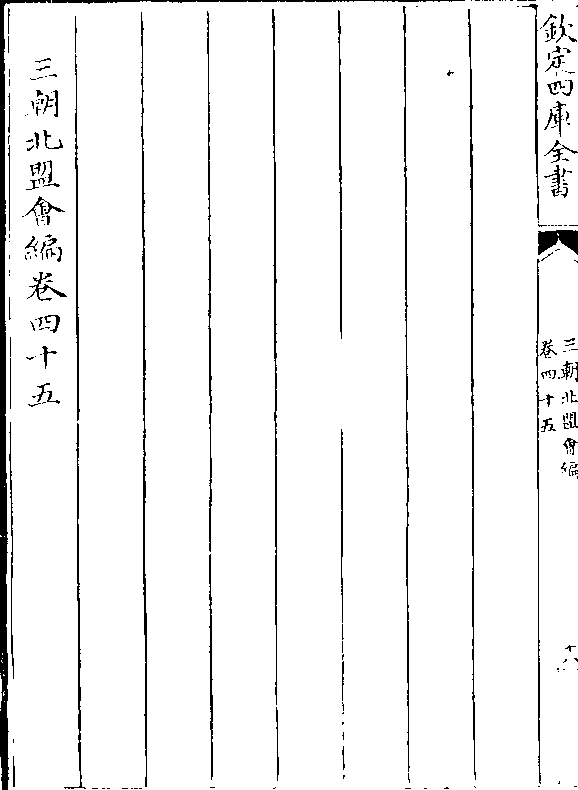 欽定四庫全書
三朝北盟會編
卷四十五
十八
三朝北盟會編卷四十五